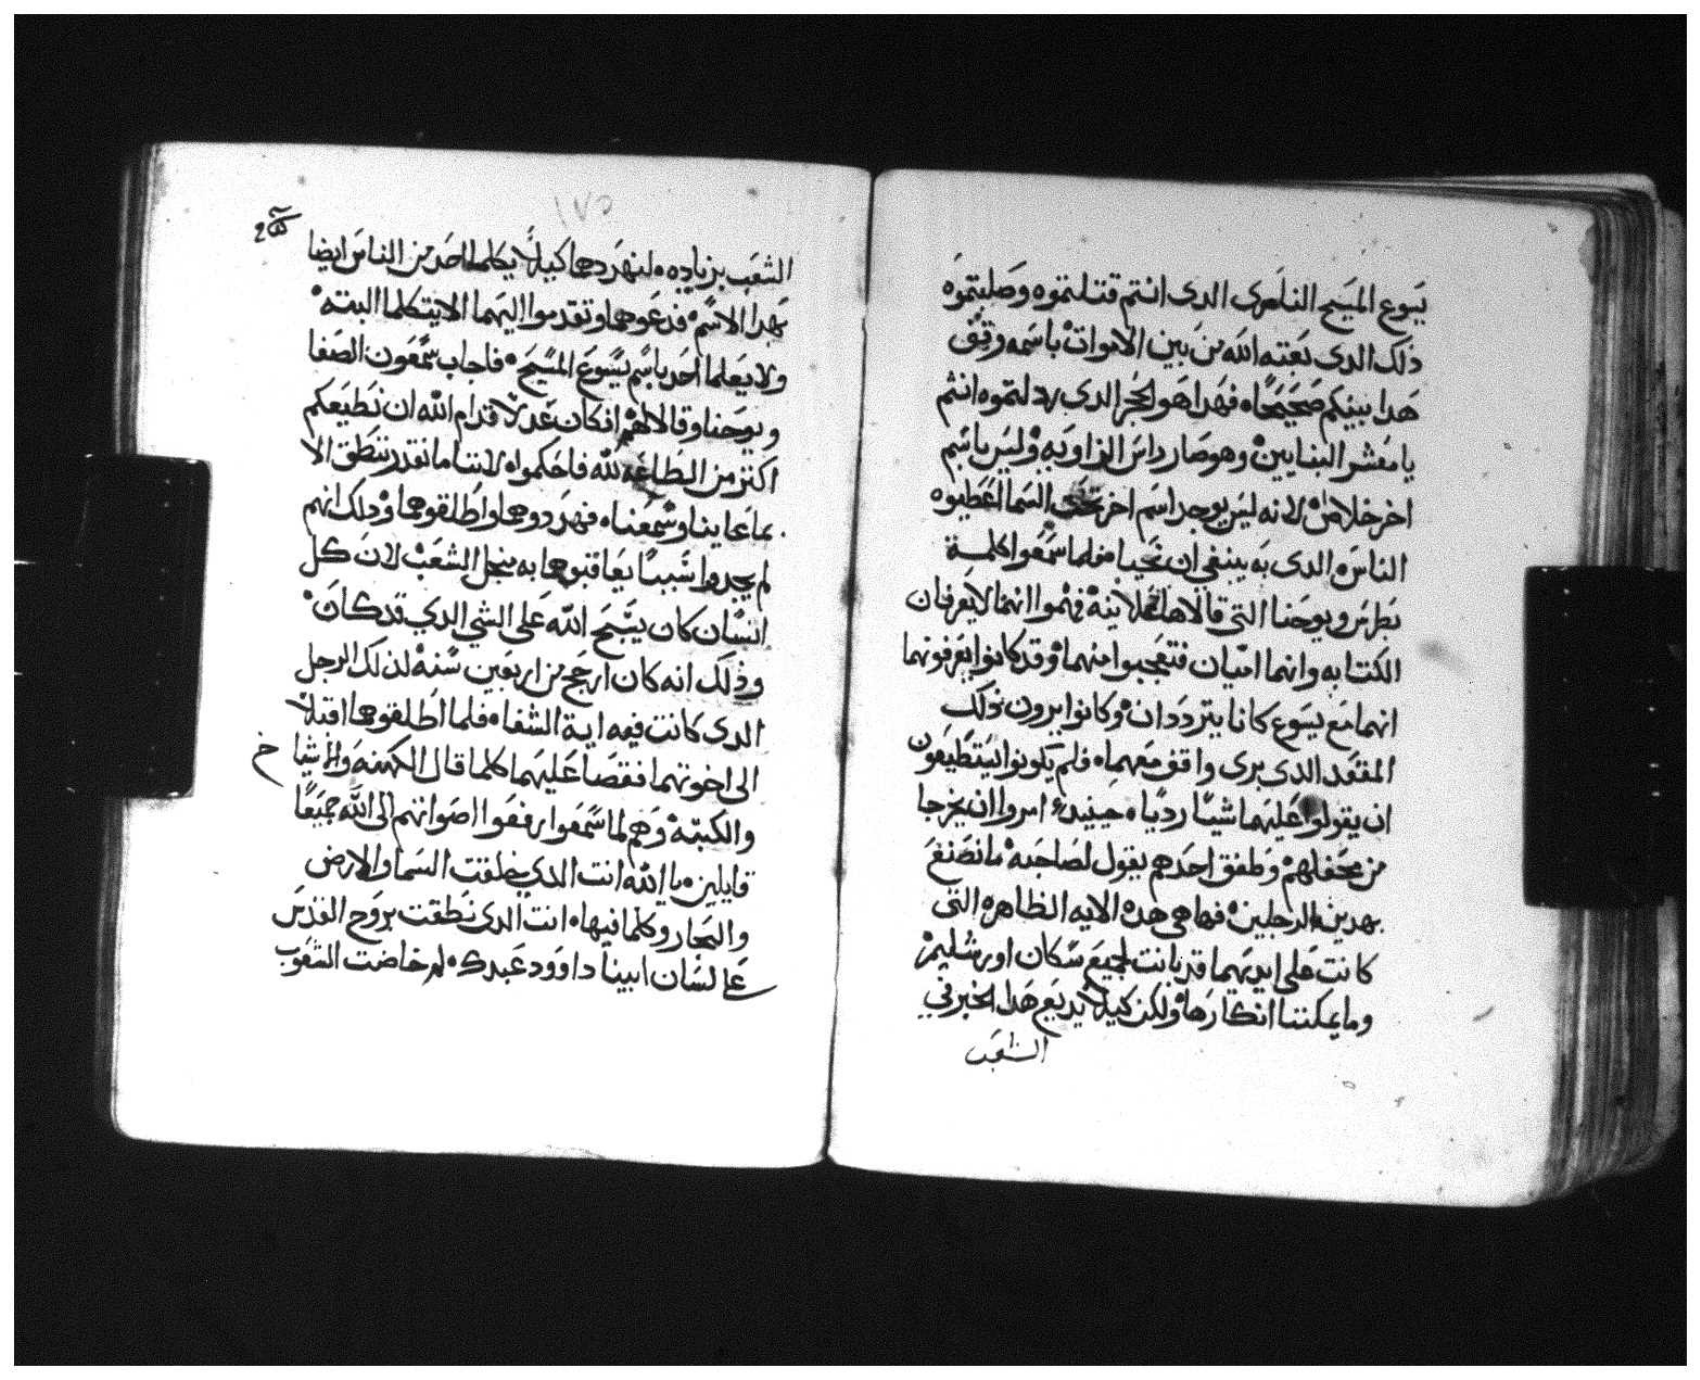 يسوع المسيح الناصرى الدى انتم قتلتموه وصلبتموه
ذلك الدى بعته الله من بين الاموات باسمه وقف
هدا بينكم صحيحًا فهدا هو الحجر الدى ردلتموه انتم
يا معشر البنايين وهو صار راس الزاويه وليس باسم
اخر خلاص لانه ليس يوجد اسم اخر تحت السما اعطيوه
الناس الدى به ينبغي ان نحيا فلما سمعوا كلمة
بطرس ويوحنا التى قالاها علانيه فهموا انهما لا يعرفان
الكتابه وانهما اميان فتعجبوا منهما وقد كانوا يعرفونهما
انهما مع يسوع كانا يترددان وكانوا يرون ذلك
المقعد الدى برى واقف معهما فلم يكونوا يستطيعون
ان يقولوا عليهما شيًا رديًا حينيد امروا ان يخرجا
من محفلهم وطفق احدهم يقول لصاحبه ما نصنع
بهدين الرجلين فهاهى هده الايه الظاهره التى
كانت على ايديهما قد بانت لجميع سكان اورشليم
وما يمكننا انكارها ولكن كيلا يديع هدا الخبر في
الشعب
١٧٥
الشعب بزياده لنهردهما كيلا يكلما احد من الناس ايضا
بهدا الاسم فدعوهما وتقدموا اليهما الا يتكلما البته
ولا يعلما احد باسم يسوع المسيح فاجاب سمعون الصفا
ويوحنا وقالا لهم ان كان عدلا قدام الله ان نطيعكم
اكتر من الطاعه لله فاحكموا لاننا ما نقدر ننطق الا
بما عاينا وسمعناه فنهردوهما واطلقوهما ودلك انهم
لم يجدوا سببًا يعاقبوهما به من اجل الشعب لان كل
انسان كان يسبح الله على الشي الدي قد كان
وذلك انه كان ارجح من اربعين سنه لذلك الرجل
الدى كانت فيه اية الشفا فلما اطلقوهما اقبلا
الى اخوتهما فقصا عليهما كلما قال الكهنه والمشيخا
والكتبه وهم لما سمعوا رفعوا اصواتهم الى الله جميعًا
قايلين يا الله انت الدي خلقت السما والارض
والبحار وكلما فيها انت الدى نطقت بروح القدس
على لسان ابينا داوود عبدك لم خاضت الشعوب